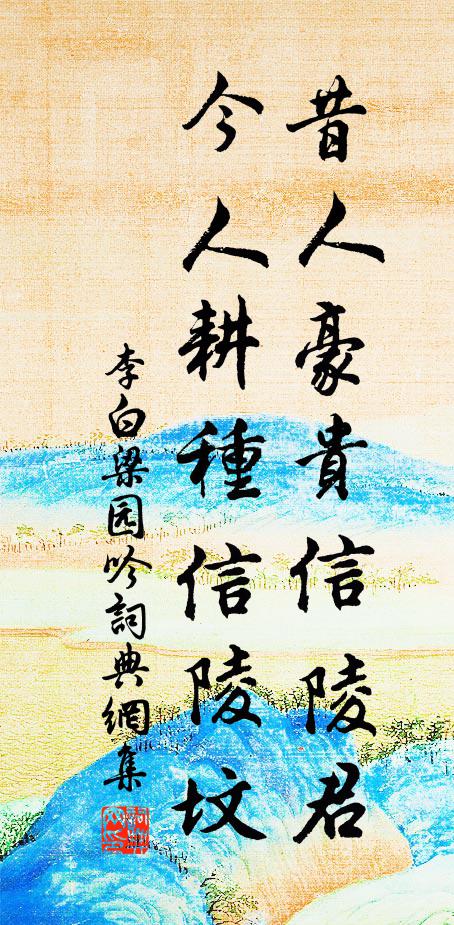 昔人豪貴信陵君
今人耕種信陵墳
李白梁园吟詞典網集